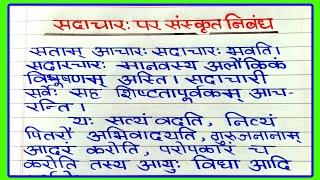 सदाचारः पर संस्कृत निबंध
सताम् आचारः सदाचारः भवति।
सदारचारः मानवस्य अलौकिकं
विभूषणम् अस्ति। सदाचारी
सर्वैः सह शिष्टतापूर्वकम् आच-
रन्ति।
यः सत्यं वदति, नित्यं
पितरौ अभिवादयति, गुरुजनानाम्
आदरं करोति, परोपकारं च
करोति तस्य आयुः विधा आदि